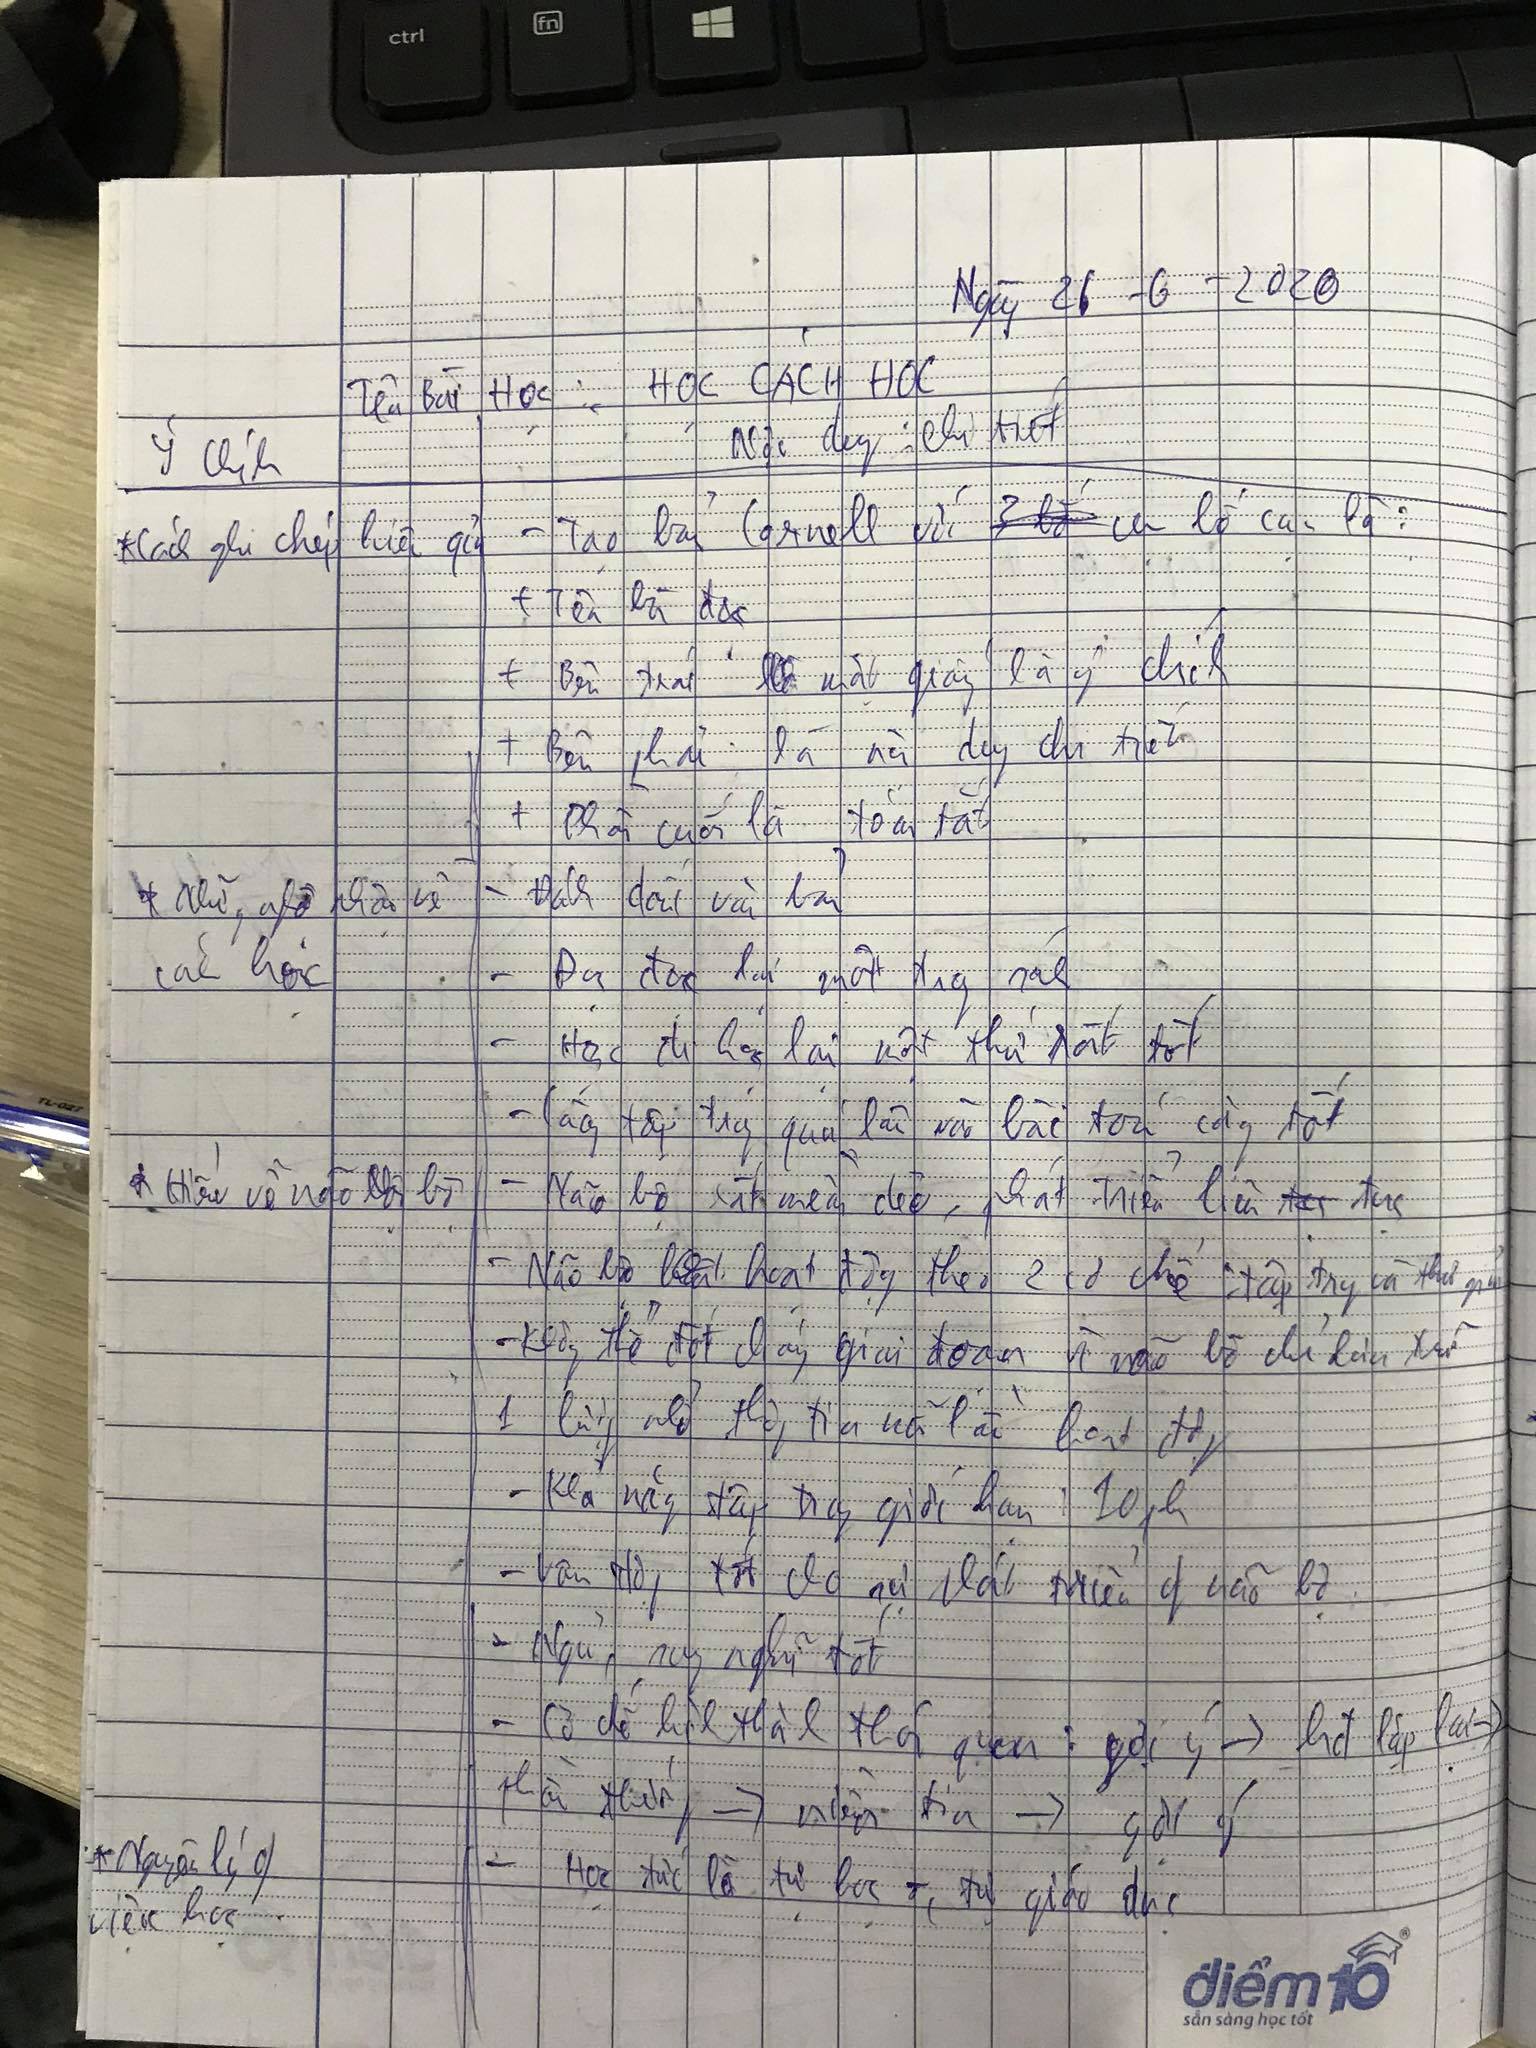 ctrl
fn
Ngày 26 - 6 - 2020
Tên Bài Học : HỌC CÁCH HỌC
Ý chính
Nội dung chi tiết
* Cách ghi chép hiệu quả
- Tạo bản Cornell với bố cục là :
+ Tên bài đọc
+ Bên trái mặt giấy là ý chính
+ Bên phải là nội dung chi tiết
+ Phần cuối là tóm tắt
* về
cách học
- Đánh dấu văn bản
- Đọc lại một trang sách
- Học lại một thứ rất tốt
- Càng tập trung quá lâu vào bài toán càng tốt
* Hiểu về não bộ
- Não bộ rất mềm dẻo, phát triển liên tục
- Não bộ hoạt động theo 2 cơ chế : tập trung và thư giãn
- Không thể đốt cháy giai đoạn vì não bộ chỉ lưu trữ
1 lượng nhỏ thông tin mỗi lần hoạt động
- Khả năng tập trung giới hạn : 10 ph
- Vận động tốt cho sự phát triển não bộ
- Ngủ, suy nghĩ tốt
- Cơ chế hình thành thói quen : gợi ý → lặp lại →
phần thưởng → niềm tin → gợi ý
* Nguyên lý
việc học
- Học tức là tự học, tự giáo dục
điểm 10
sẵn sàng học tốt
TL-027